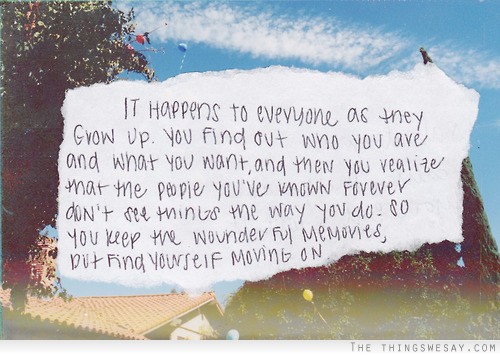 IT HAPPENS TO EVERYONE AS THEY
GROW UP. YOU FIND OUT WHO YOU ARE
AND WHAT YOU WANT, AND THEN YOU REALIZE
THAT THE PEOPLE YOU'VE KNOWN FOREVER
DON'T SEE THINGS THE WAY YOU DO. SO
YOU KEEP THE WOUNDERFUL MEMORIES,
BUT FIND YOURSELF MOVING ON
THE THINGSWESAY.COM